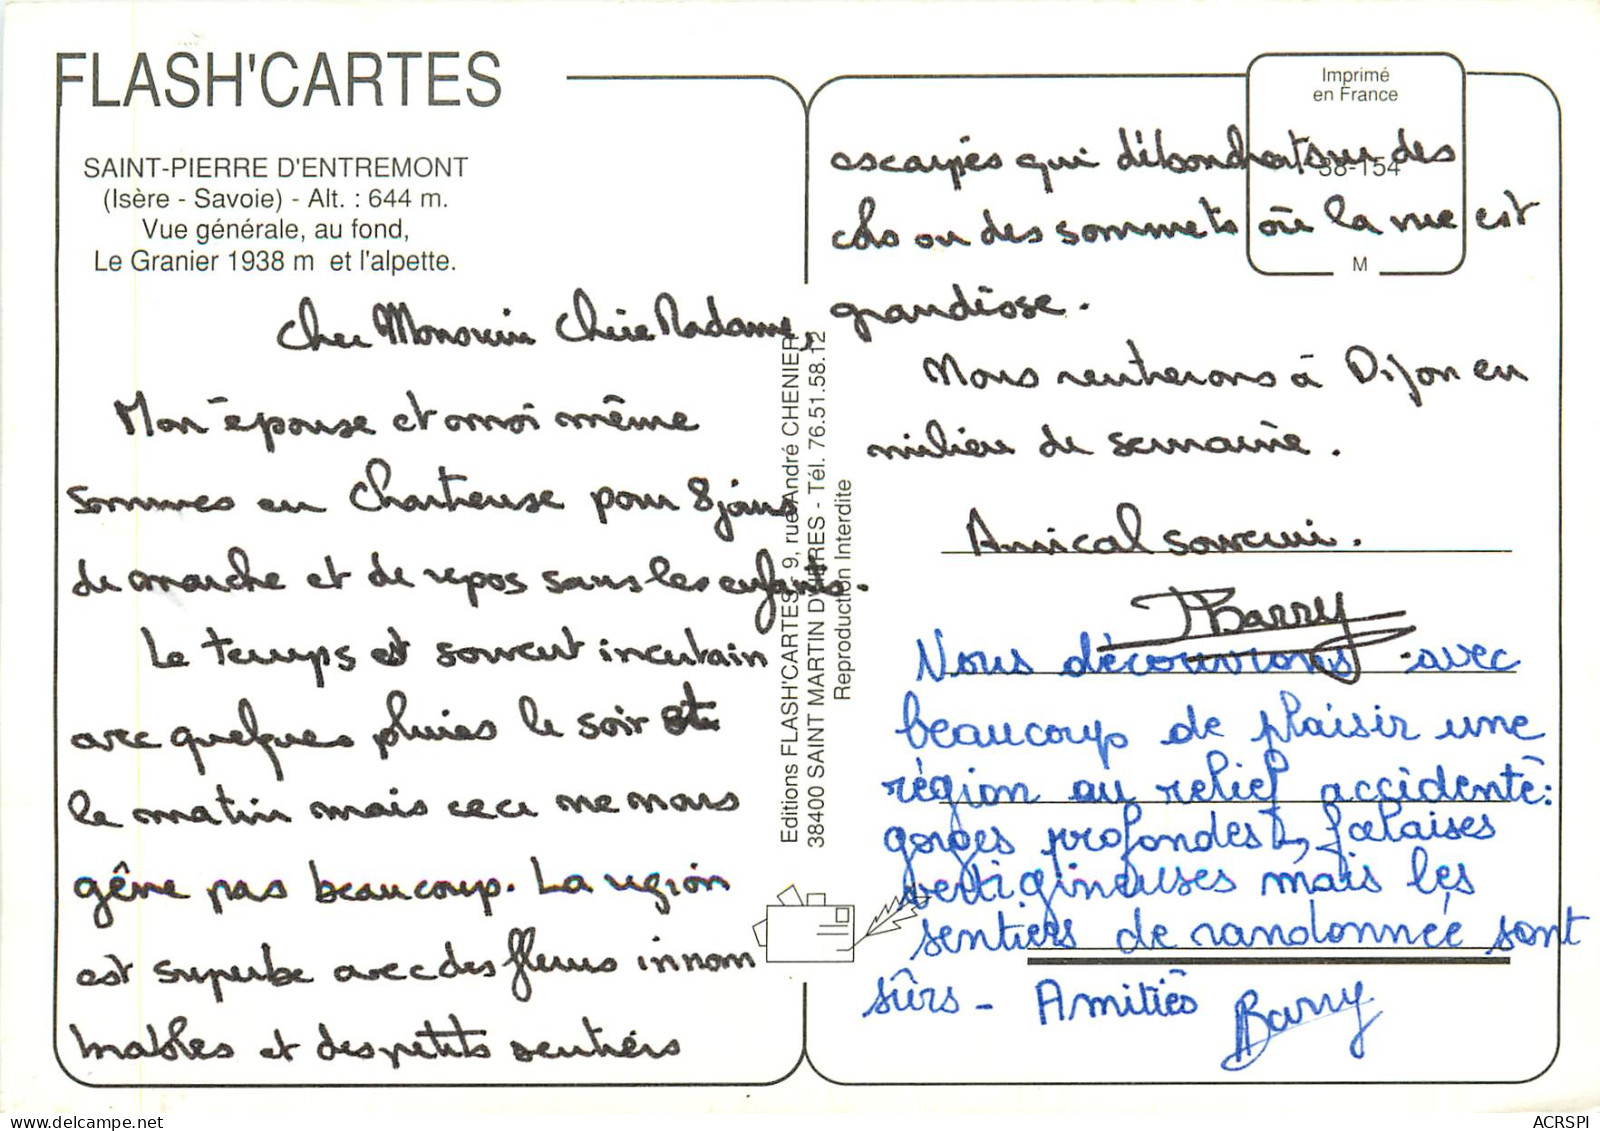 FLASH'CARTES
SAINT-PIERRE D'ENTREMONT
(Isère - Savoie) - Alt. : 644 m.
Vue générale, au fond,
Le Granier 1938 m et l'alpette.
Cher Monsieur Chère Madame,
Mon épouse et moi même
sommes en Chartreuse pour 8 jours
de marche et de repos sans les enfants.
Le temps est souvent incertain
avec quelques pluies le soir et
le matin mais ceci ne nous
gêne pas beaucoup. La région
est superbe avec des fleurs innom
brables et des petits sentiers
Editions FLASH'CARTES 9, rue André CHENIER
38400 SAINT MARTIN D'HERES - Tél. 76.51.58.12
Reproduction Interdite
Imprimé
en France
38-154
M
escarpés qui débouchent sur des
cols ou des sommets où la vue est
grandiose.
Nous rentrerons à Dijon en
milieu de semaine.
Amical souvenir.
Barry
Nous découvrons avec
beaucoup de plaisir une
région au relief accidenté:
gorges profondes, falaises
vertigineuses mais les
sentiers de randonnée sont
sûrs - Amitiés Barry
ACRSPI